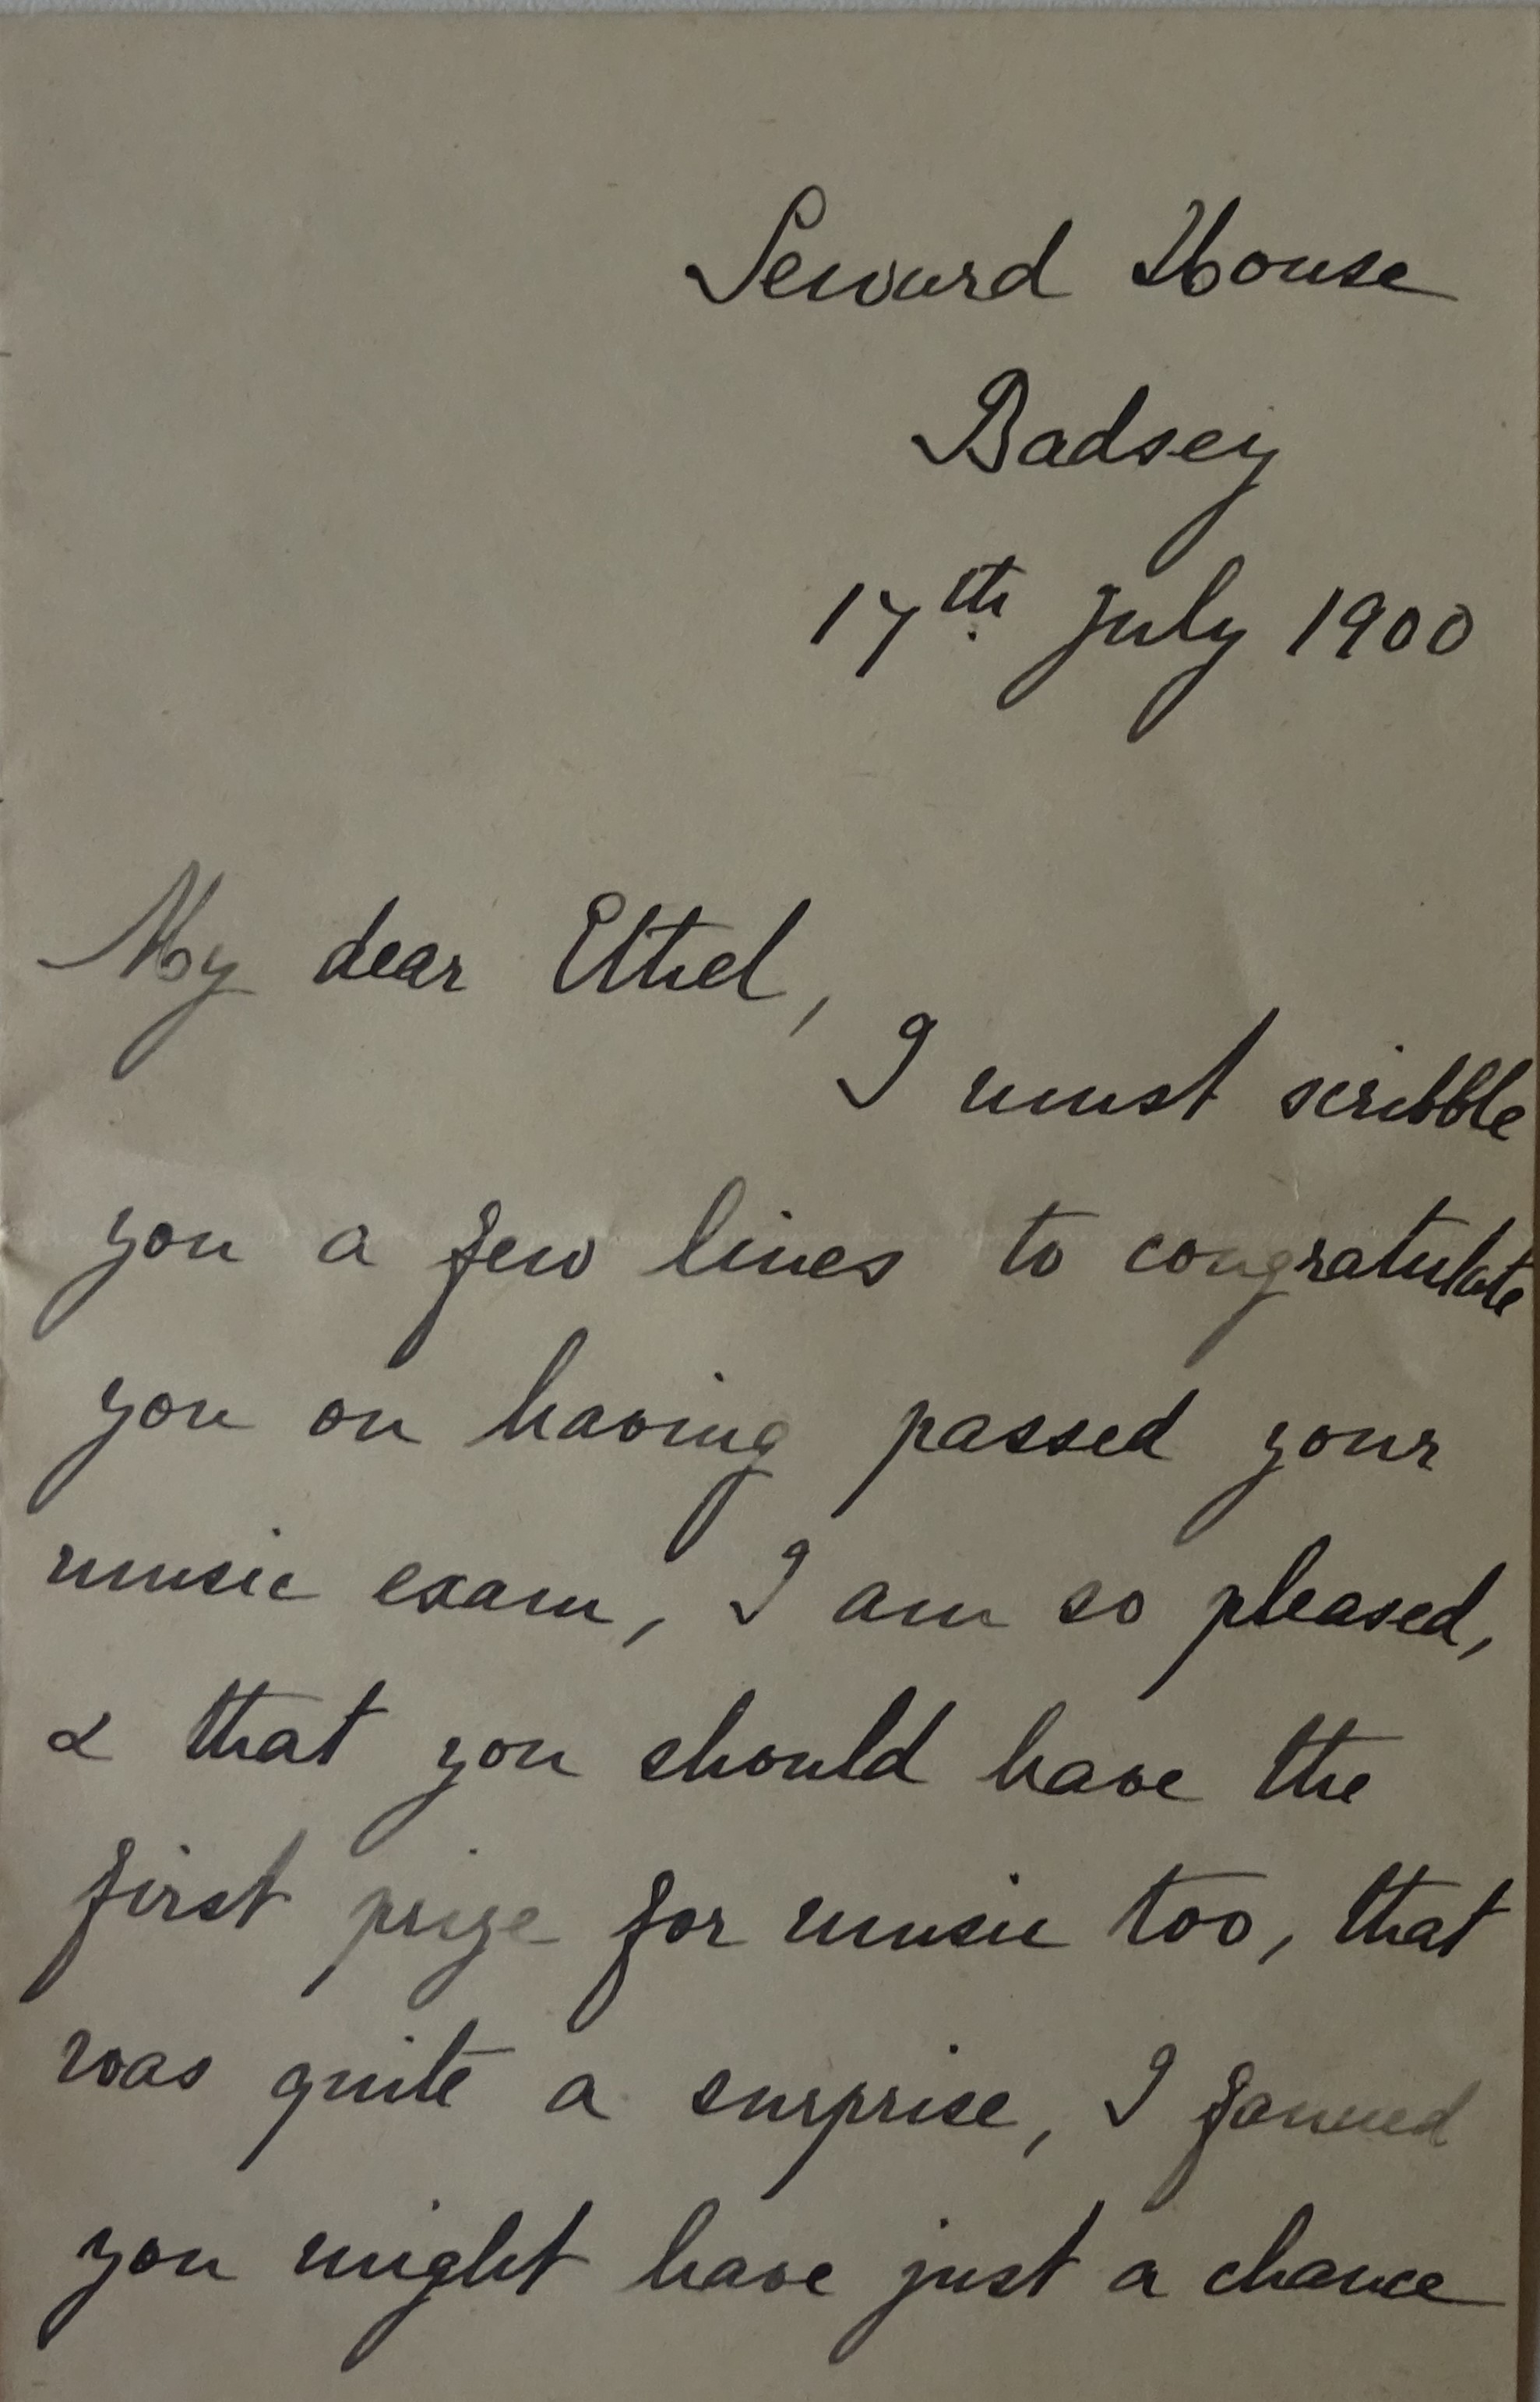 Seward House
Badsey
17th July 1900
My dear Ethel,
I must scribble
you a few lines to congratulate
you on having passed your
music exam, I am so pleased,
& that you should have the
first prize for music too, that
was quite a surprise, I
you might have just a chance